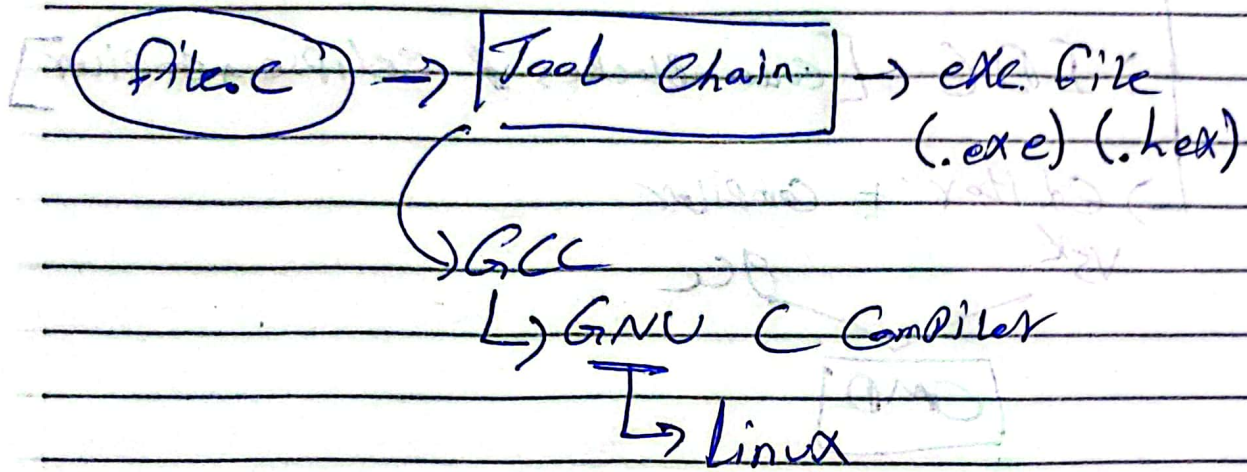 file.c → Tool Chain → exe. file
(.exe) (.hex)
GCC
GNU C Compiler
Linux